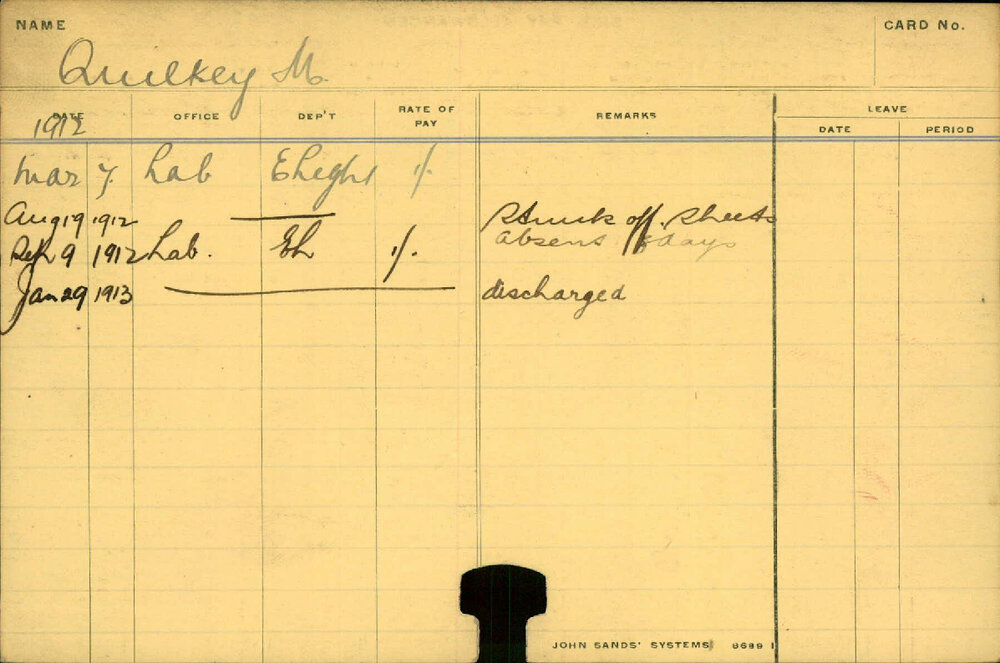 NAME
CARD No.
Quilkey M.
DATE OFFICE DEP'T RATE OF PAY REMARKS LEAVE
DATE PERIOD
1912
Mar 7. Lab 1/.
Aug 19 1912 Struck off Sheets
Absent days
Sep 9 1912 Lab. Eh 1/.
Jan 29 1913 discharged
JOHN SANDS' SYSTEMS